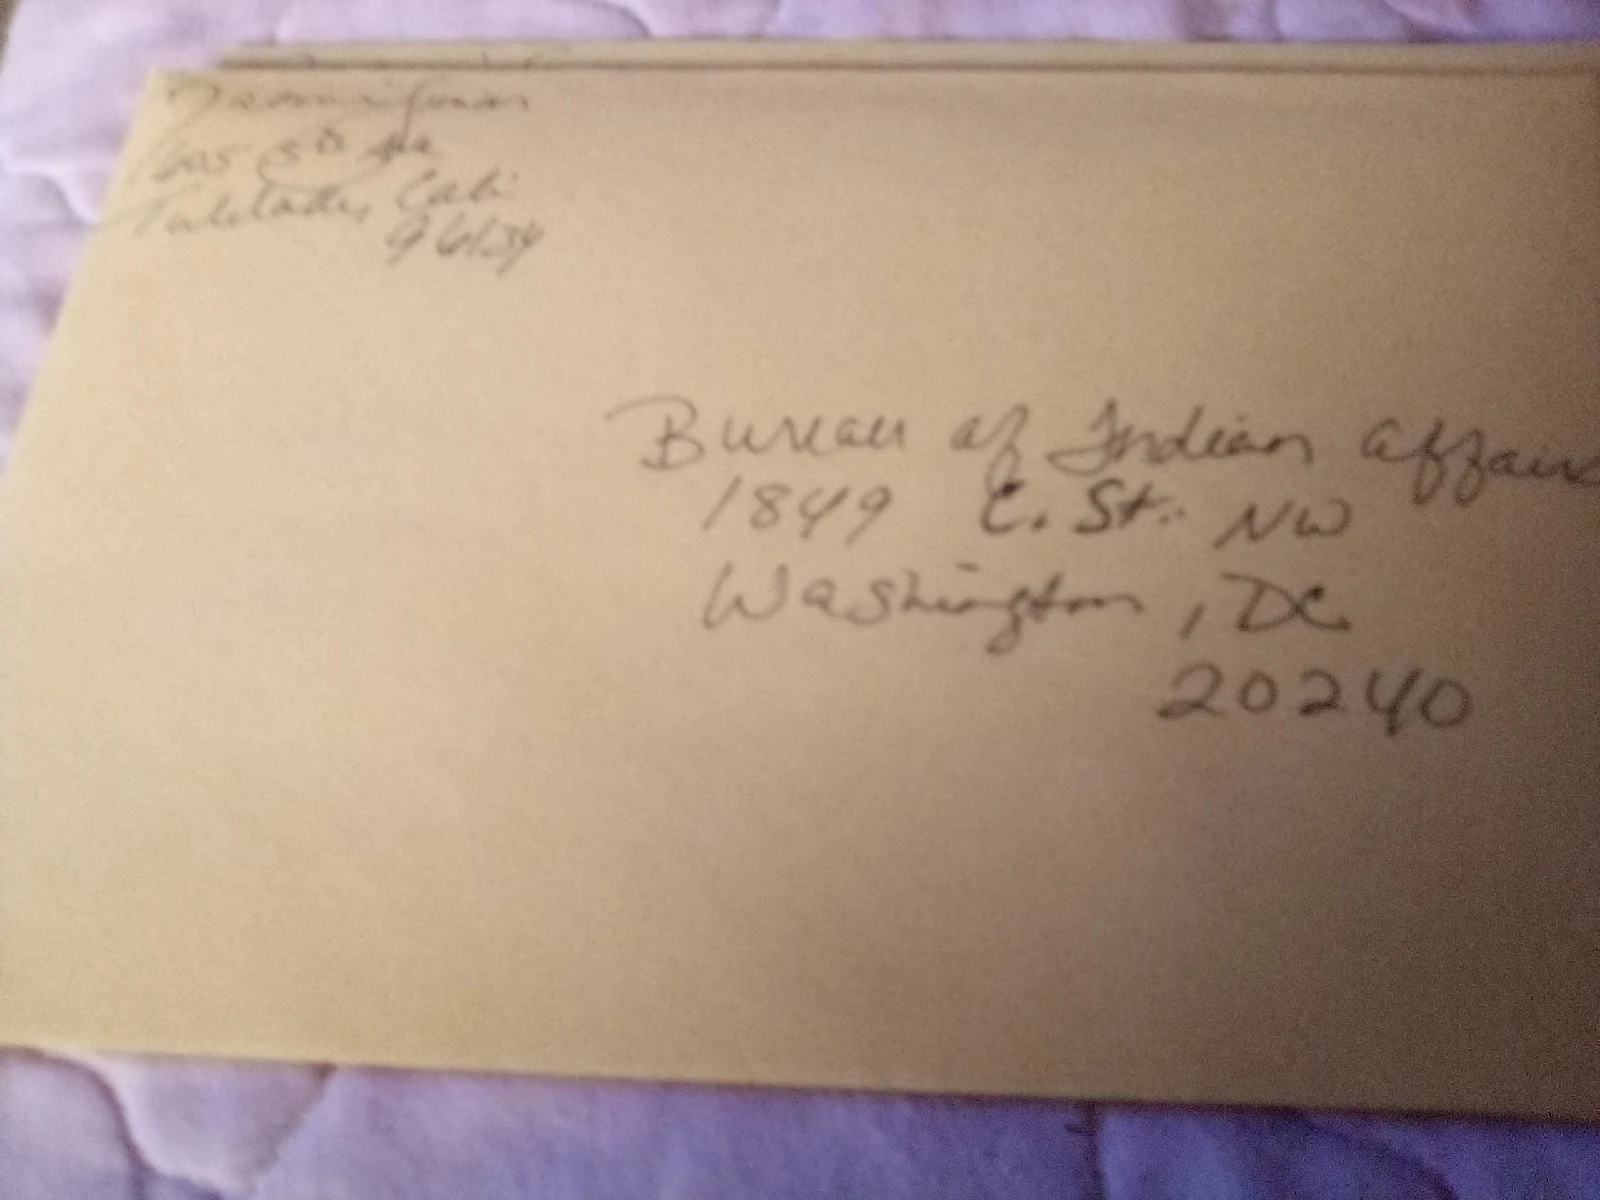 5th Ave
Cali
96134
Bureau of Indian Affairs
1849 C. St. NW
Washington, DC
20240